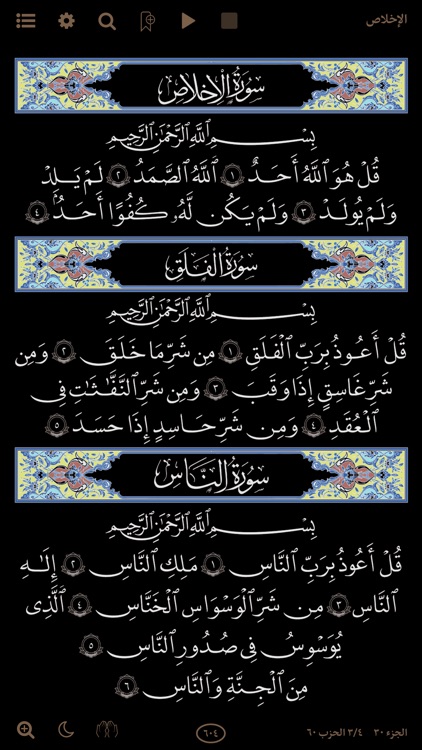 الإخلاص
سُورَةُ الإِخْلَاصِ
بِسْمِ ٱللَّهِ ٱلرَّحْمَٰنِ ٱلرَّحِيمِ
قُلْ هُوَ ٱللَّهُ أَحَدٌ ١ ٱللَّهُ ٱلصَّمَدُ ٢ لَمْ يَلِدْ
وَلَمْ يُولَدْ ٣ وَلَمْ يَكُن لَّهُۥ كُفُوًا أَحَدٌۢ ٤
سُورَةُ الفَلَقِ
بِسْمِ ٱللَّهِ ٱلرَّحْمَٰنِ ٱلرَّحِيمِ
قُلْ أَعُوذُ بِرَبِّ ٱلْفَلَقِ ١ مِن شَرِّ مَا خَلَقَ ٢ وَمِن
شَرِّ غَاسِقٍ إِذَا وَقَبَ ٣ وَمِن شَرِّ ٱلنَّفَّٰثَٰتِ فِى
ٱلْعُقَدِ ٤ وَمِن شَرِّ حَاسِدٍ إِذَا حَسَدَ ٥
سُورَةُ النَّاسِ
بِسْمِ ٱللَّهِ ٱلرَّحْمَٰنِ ٱلرَّحِيمِ
قُلْ أَعُوذُ بِرَبِّ ٱلنَّاسِ ١ مَلِكِ ٱلنَّاسِ ٢ إِلَٰهِ
ٱلنَّاسِ ٣ مِن شَرِّ ٱلْوَسْوَاسِ ٱلْخَنَّاسِ ٤ ٱلَّذِى
يُوَسْوِسُ فِى صُدُورِ ٱلنَّاسِ ٥
مِنَ ٱلْجِنَّةِ وَٱلنَّاسِ ٦
الجزء ٣٠ ٣/٤ الحزب ٦٠ ٦٠٤